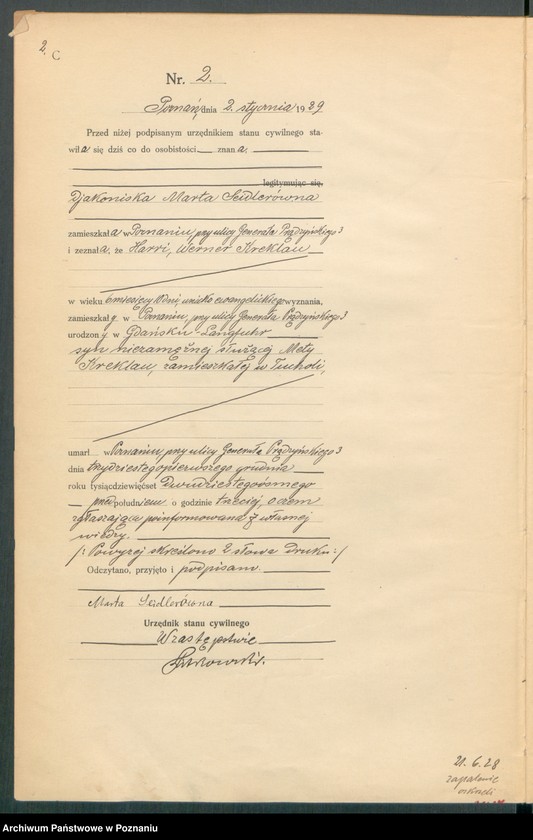 2.
C
Nr. 2.
Poznań, dnia 2. stycznia 1929
Przed niżej podpisanym urzędnikiem stanu cywilnego sta-
wiła się dziś co do osobistości znana.
legitymując się.
Djakoniska Marta Seidlerówna
zamieszkała w Poznaniu, przy ulicy Generała Prądzyńskiego 3
i zeznała, że Harri, Werner Kreklau
w wieku 6 miesięcy 10 dni, ewangelickiego wyznania,
zamieszkał y. w Poznaniu, przy ulicy Generała Prądzyńskiego 3
urodzony w Gdańsku-Langfuhr
syn niezamężnej służącej Mety
Kreklau, zamieszkałej w Tucholi,
umarł w Poznaniu, przy ulicy Generała Prądzyńskiego 3
dnia trzydziestegopierwszego grudnia
roku tysiącdziewięćset dwudziestegoósmego
przedpołudniem o godzinie trzeciej, o czem
zgłaszająca poinformowana z własnej
wiedzy.
/: Powyżej skreślono 2 słowa druku :/
Odczytano, przyjęto i podpisano.
Marta Seidlerówna
Urzędnik stanu cywilnego
W zastępstwie
21.6.28
zapalenie
oskrzeli
Archiwum Państwowe w Poznaniu